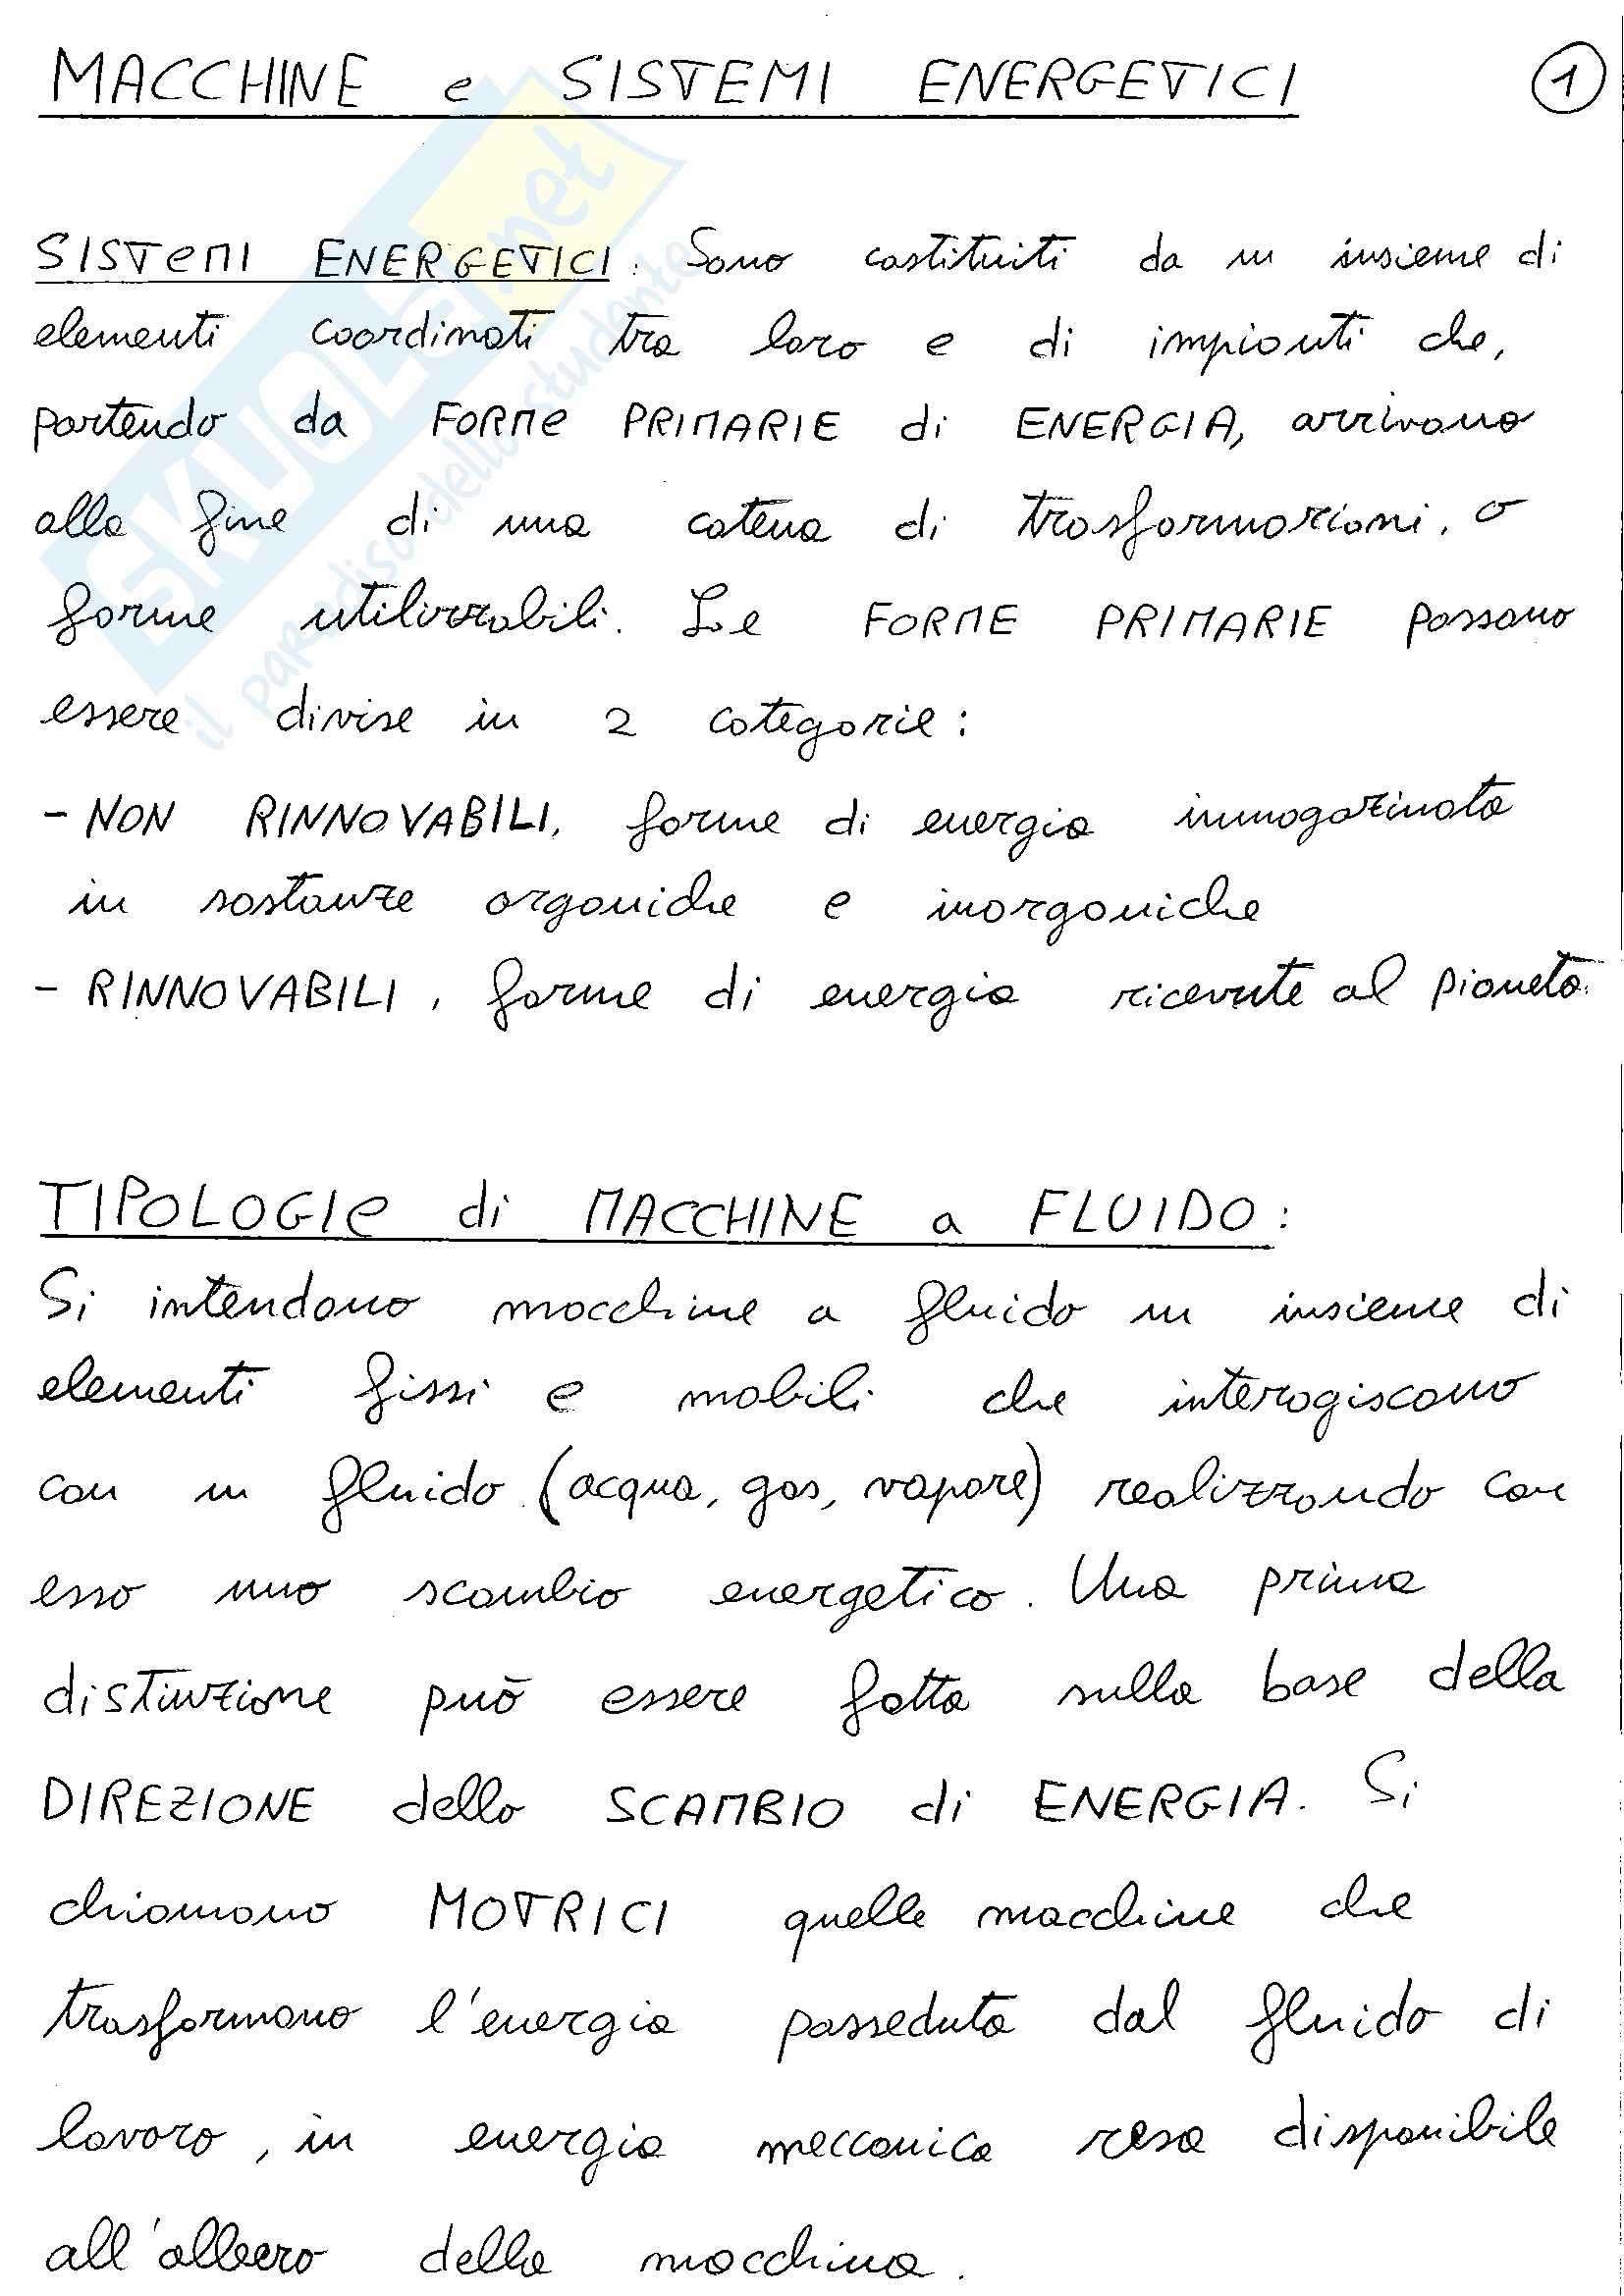 MACCHINE e SISTEMI ENERGETICI 1
SISTEMI ENERGETICI: Sono costituiti da un insieme di
elementi coordinati tra loro e di impianti che,
partendo da FORME PRIMARIE di ENERGIA, arrivano
alla fine di una catena di trasformazioni, a
forme utilizzabili. Le FORME PRIMARIE possono
essere divise in 2 categorie:
- NON RINNOVABILI, forme di energia immagazinata
in sostanze organiche e inorganiche
- RINNOVABILI, forme di energia ricevute al pianeta.
TIPOLOGIE di MACCHINE a FLUIDO:
Si intendono macchine a fluido un insieme di
elementi fissi e mobili che interagiscono
con un fluido (acqua, gas, vapore) realizzando con
esso uno scambio energetico. Una prima
distinzione può essere fatta sulla base della
DIREZIONE dello SCAMBIO di ENERGIA. Si
chiamano MOTRICI quelle macchine che
trasformano l'energia posseduta dal fluido di
lavoro, in energia meccanica resa disponibile
all'albero della macchina.
SKUOLA.net
il paradiso dello studente